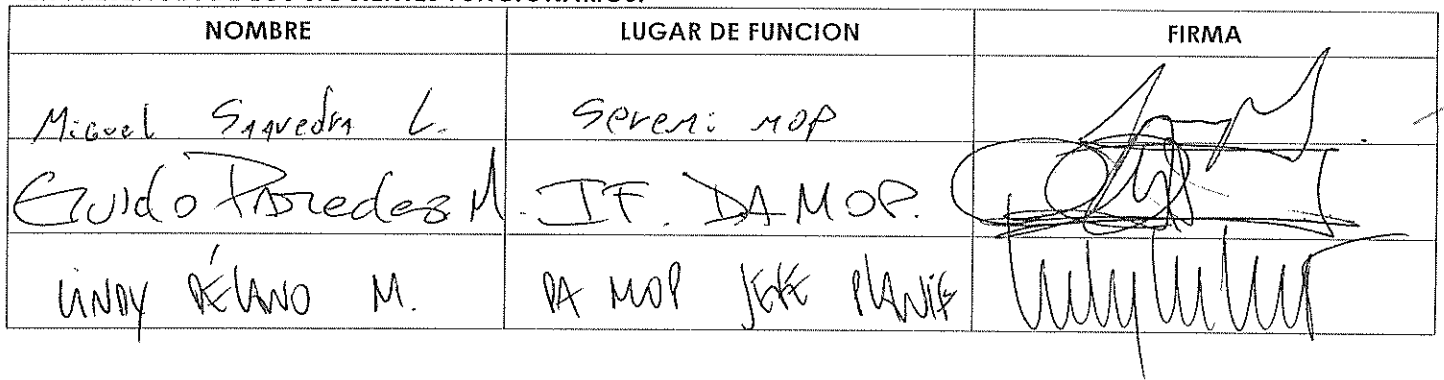 NOMBRE LUGAR DE FUNCION FIRMA
Miguel Saavedra L. Seremi MOP
Guido Paredes M. I.F. DA MOP.
LINDY DÉLANO M. DA MOP JEFE PLANIF